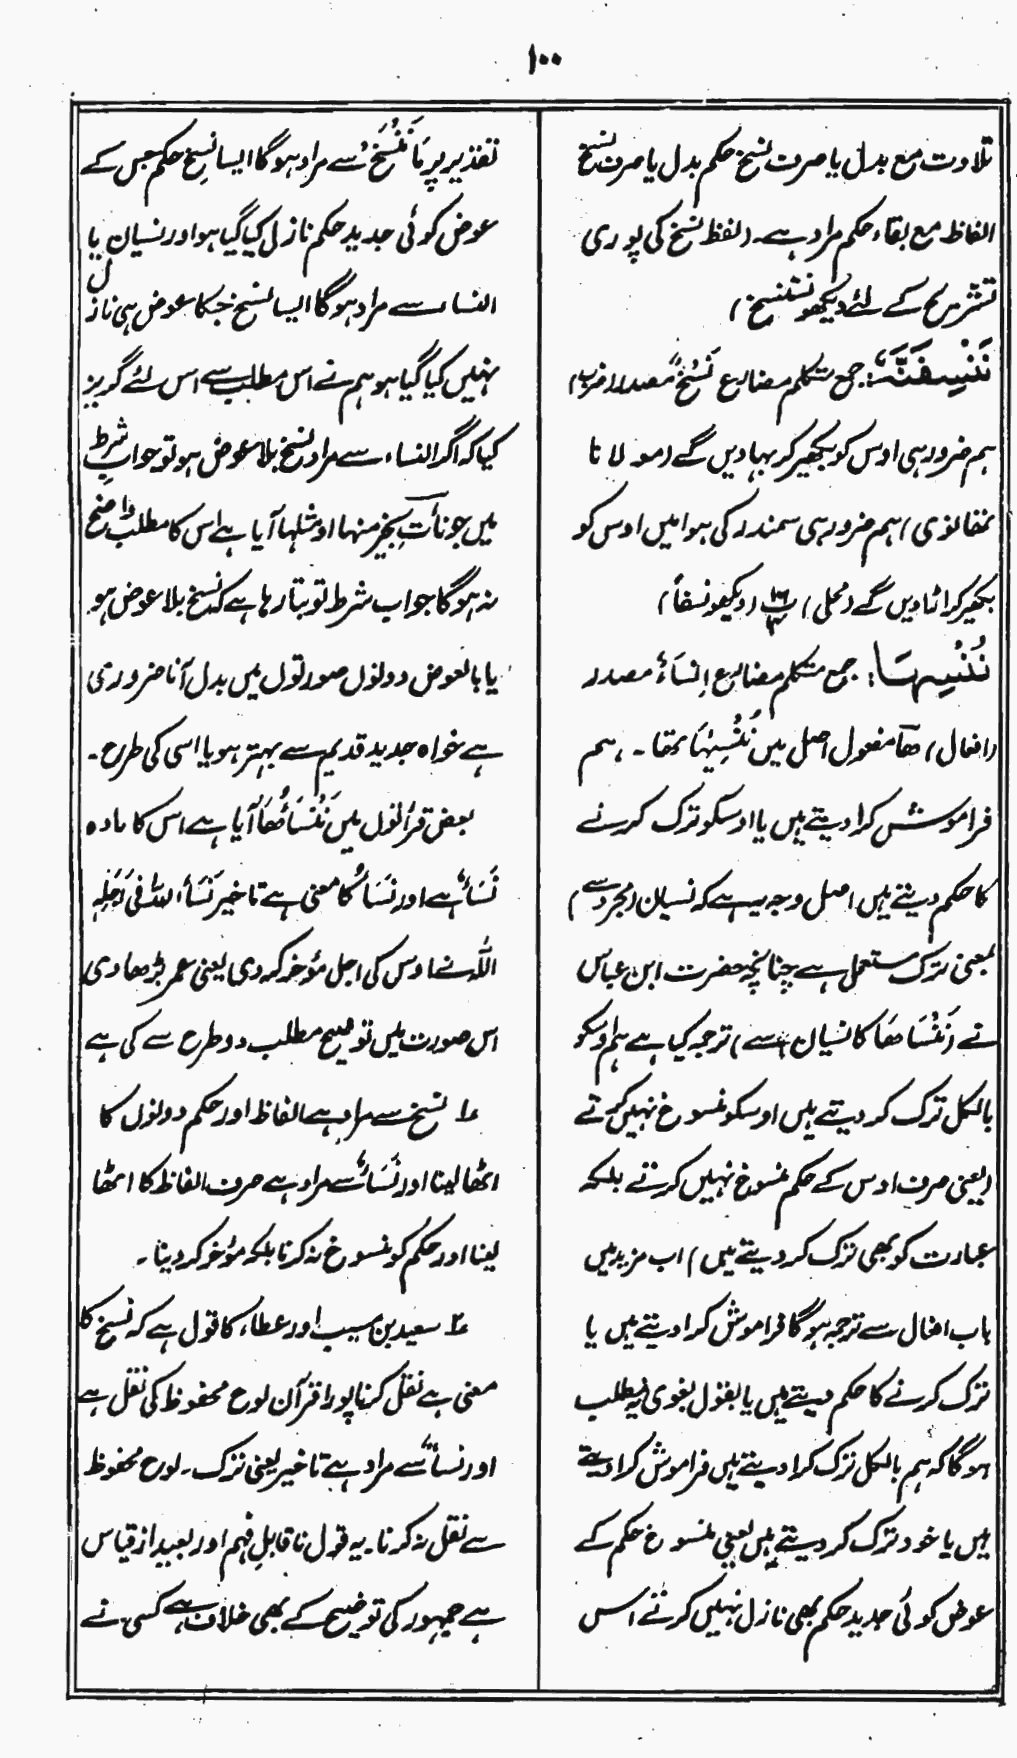 ۱۰۰
تلاوت مع بدل یا صرف نسخ حکم بدل یا صرف نسخ
الفاظ مع بقاء حکم مراد ہے۔ (لفظ نسخ کی پوری
تشریح کے لئے دیکھو نستنسخ)
نَنْسِفَنَّہٗ: جمع متکلم مضارع نَسْفٌ مصدر (ضرب)
ہم ضرور ہی اوس کو بکھیر کر بہا دیں گے (مولانا
تھانوی) ہم ضرور ہی سمندر کی ہوا میں اوس کو
بکھیر کر اڑا دیں گے (محلی) (دیکھو نسفاً)
نُنْسِہَا: جمع متکلم مضارع اِنْسَاءٌ مصدر
(افعال) ھَا مفعول اصل میں نُنْسِیْہَا تھا۔ ہم
فراموش کرا دیتے ہیں یا اوسکو ترک کرنے
کا حکم دیتے ہیں اصل وجہ یہ ہے کہ نسیان (مجرد سے)
بمعنی ترک مستعمل ہے چنانچہ حضرت ابن عباس
نے (نَنْسَاھَا کا نسیان سے) ترجمہ کیا ہے ہم اوسکو
بالکل ترک کر دیتے ہیں اوسکو منسوخ نہیں کرتے
(یعنی صرف اوس کے حکم منسوخ نہیں کرتے بلکہ
عبارت کو بھی ترک کر دیتے ہیں) اب مزید میں
باب افعال سے ترجمہ ہو گا فراموش کرا دیتے ہیں یا
ترک کرنے کا حکم دیتے ہیں یا بقول بغوی یہ مطلب
ہو گا کہ ہم بالکل ترک کرا دیتے ہیں فراموش کرا دیتے
ہیں یا خود ترک کر دیتے ہیں یعنی منسوخ حکم کے
عوض کوئی جدید حکم بھی نازل نہیں کرتے اس
تقدیر پر مَا نَنْسَخْ سے مراد ہو گا ایسا نسخ حکم جس کے
عوض کوئی جدید حکم نازل کیا گیا ہو اور نسیان یا
انساء سے مراد ہو گا ایسا نسخ جسکا عوض ہی نازل
نہیں کیا گیا ہو ہم نے اس مطلب سے اس لئے گریز
کیا کہ اگر انساء سے مراد نسخ بلا عوض ہو تو جواب شرط
میں جو نأت بخیر منہا او مثلہا آیا ہے اس کا مطلب واضح
نہ ہو گا جواب شرط تو بتا رہا ہے کہ نسخ بلا عوض ہو
یا بالعوض دونوں صورتوں میں بدل آنا ضروری
ہے خواہ جدید قدیم سے بہتر ہو یا اسی کی طرح۔
بعض قرأتوں میں نَنْسَأُھَا آیا ہے اس کا مادہ
نَسَأٌ ہے اور نَسَأٌ کا معنی ہے تاخیر نَسَأَ اللہُ فِیْ اَجَلِہٖ
اللہ نے اوس کی اجل مؤخر کر دی یعنی عمر بڑھا دی
اس صورت میں توضیح مطلب دو طرح سے کی ہے
۱ نسخ سے مراد ہے الفاظ اور حکم دونوں کا
اٹھا لینا اور نَسَأٌ سے مراد ہے صرف الفاظ کا اٹھا
لینا اور حکم کو منسوخ نہ کرنا بلکہ مؤخر کر دینا۔
۲ سعید بن مسیب اور عطاء کا قول ہے کہ نسخ کا
معنی ہے نقل کرنا پورا قرآن لوح محفوظ کی نقل ہے
اور نسأٌ سے مراد ہے تاخیر یعنی ترک۔ لوح محفوظ
سے نقل نہ کرنا۔ یہ قول ناقابل فہم اور بعید از قیاس
ہے جمہور کی توضیح کے بھی خلاف ہے کسی نے